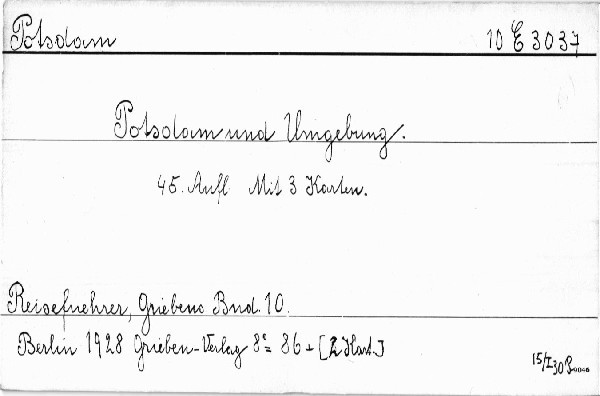 Potsdam 10 E 3037
Potsdam und Umgebung.
45. Aufl. Mit 3 Karten.
Reisefuehrer, Griebens Bnd. 10.
Berlin 1928 Grieben-Verlag 8° 86 + [2 Kart.]
15/I 30